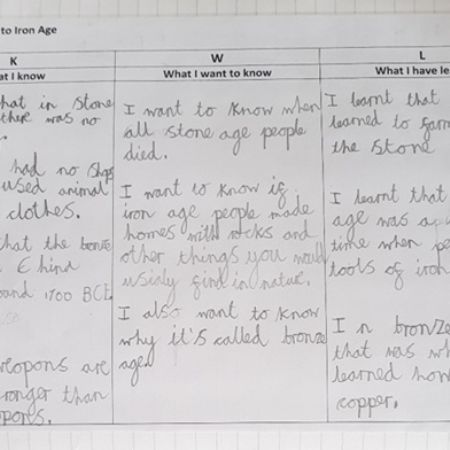 to Iron Age
K
at I know
hat in stone
there was no
had no shops
used animal
clothes.
that the bronze
E hind
ound 1700 BCE
weopons are
ronger than
opons.
W
What I want to know
I want to know when
all stone age people
died.
I want to know if
iron age people made
homes with rocks and
other things you would
usialy find in natur.
I also want to know
why it's called bronze
age.
L
What I have le
I learnt that
learned to farm
the stone
I learnt that
age was a
time when pe
tools of iron
In bronze
that was wh
learned how
copper.